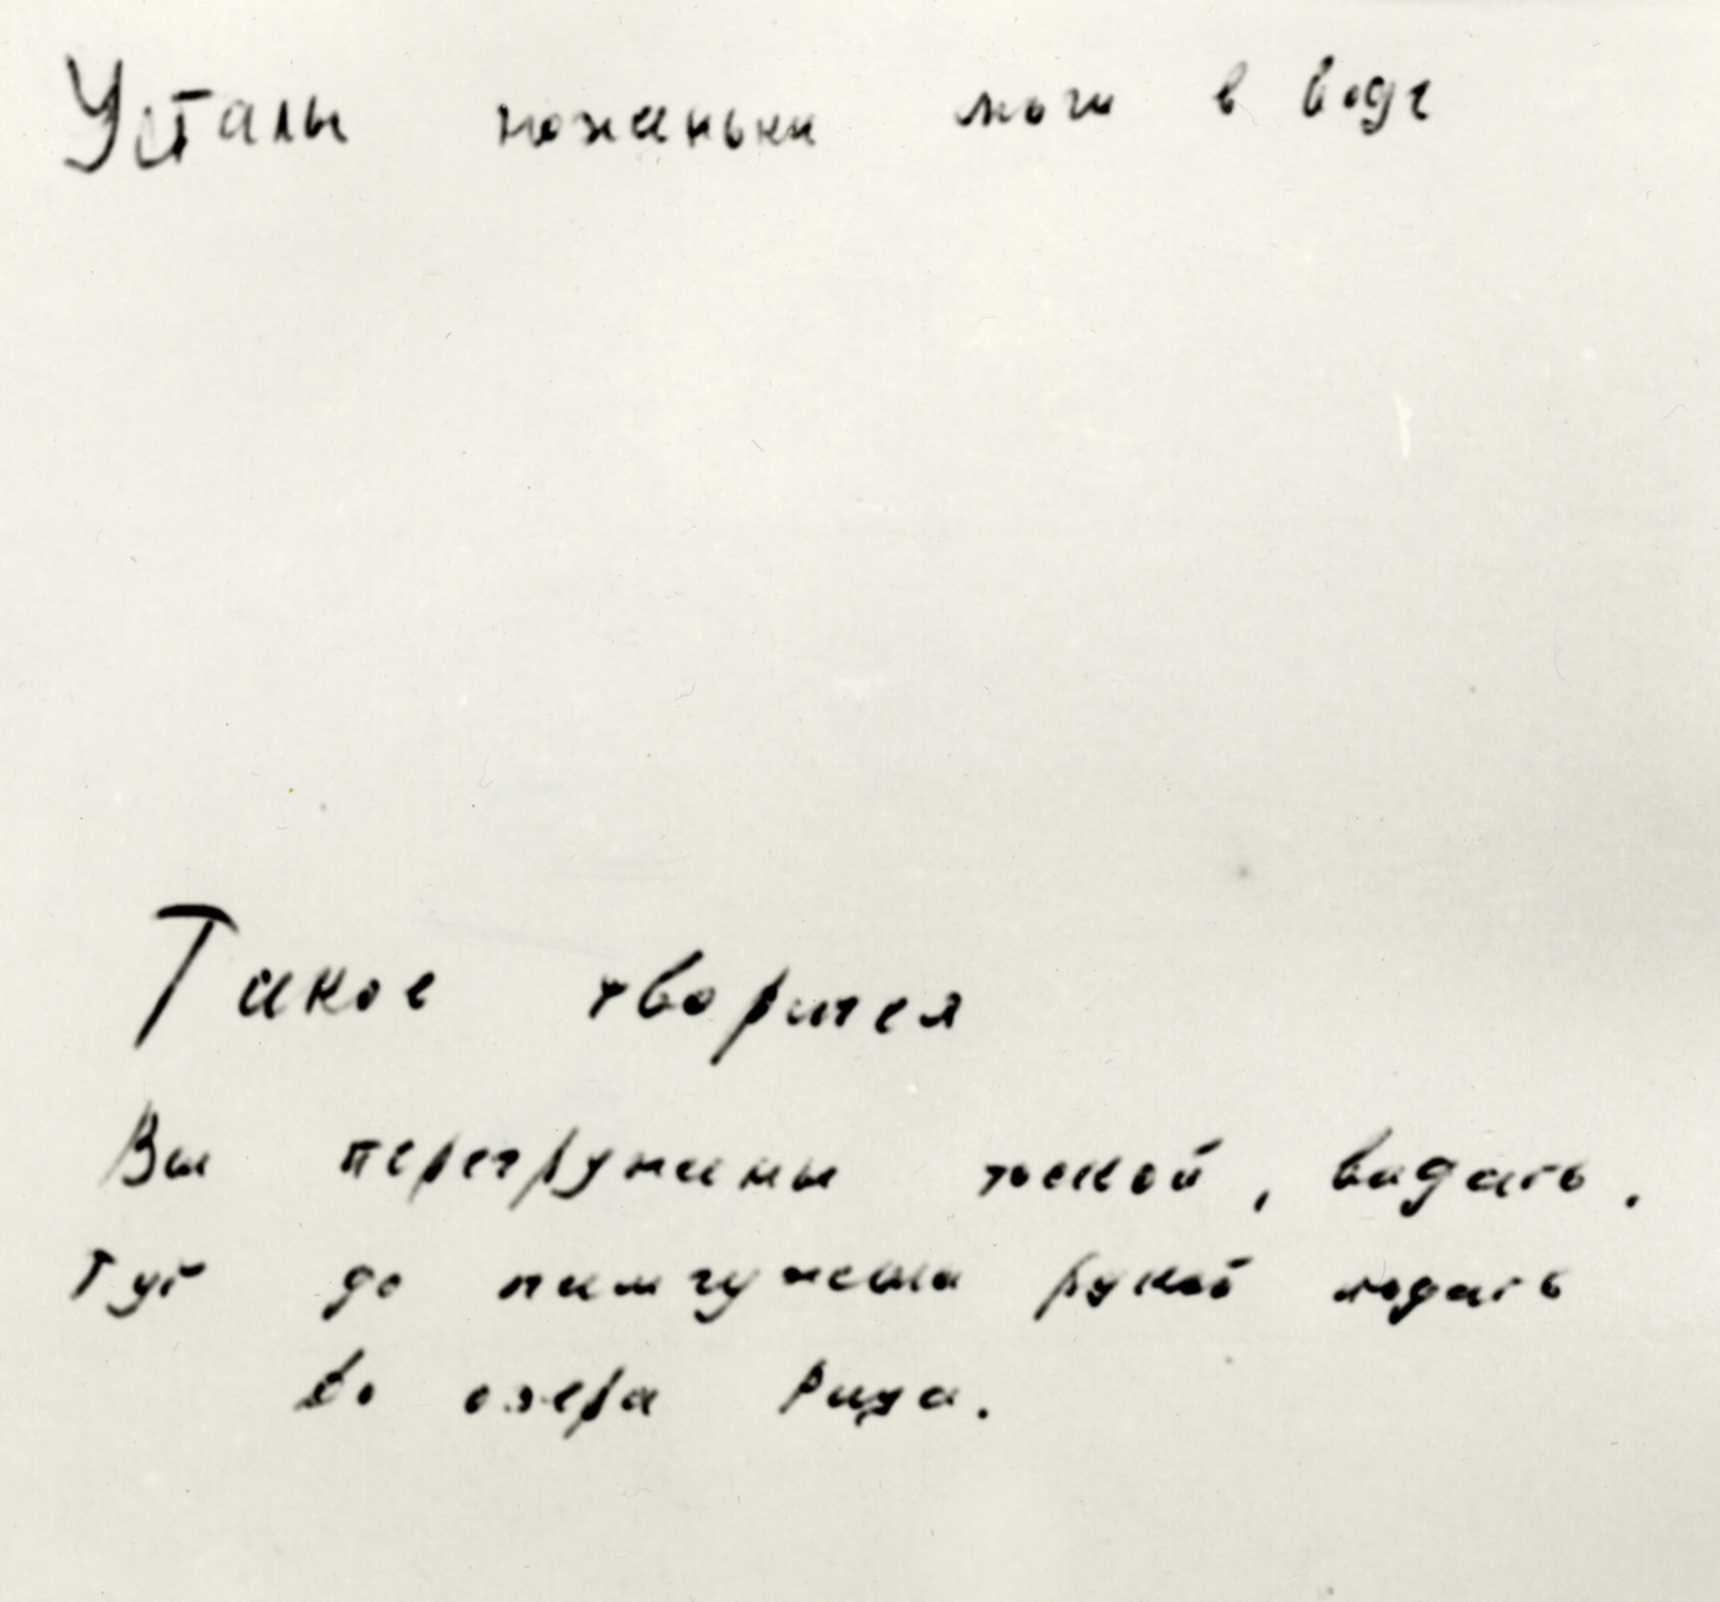 Устали ноженьки мочи в воде
Такое творится
Вы перегружены тоской, видать.
Тут до жемчужины рукой подать
до озера Рица.